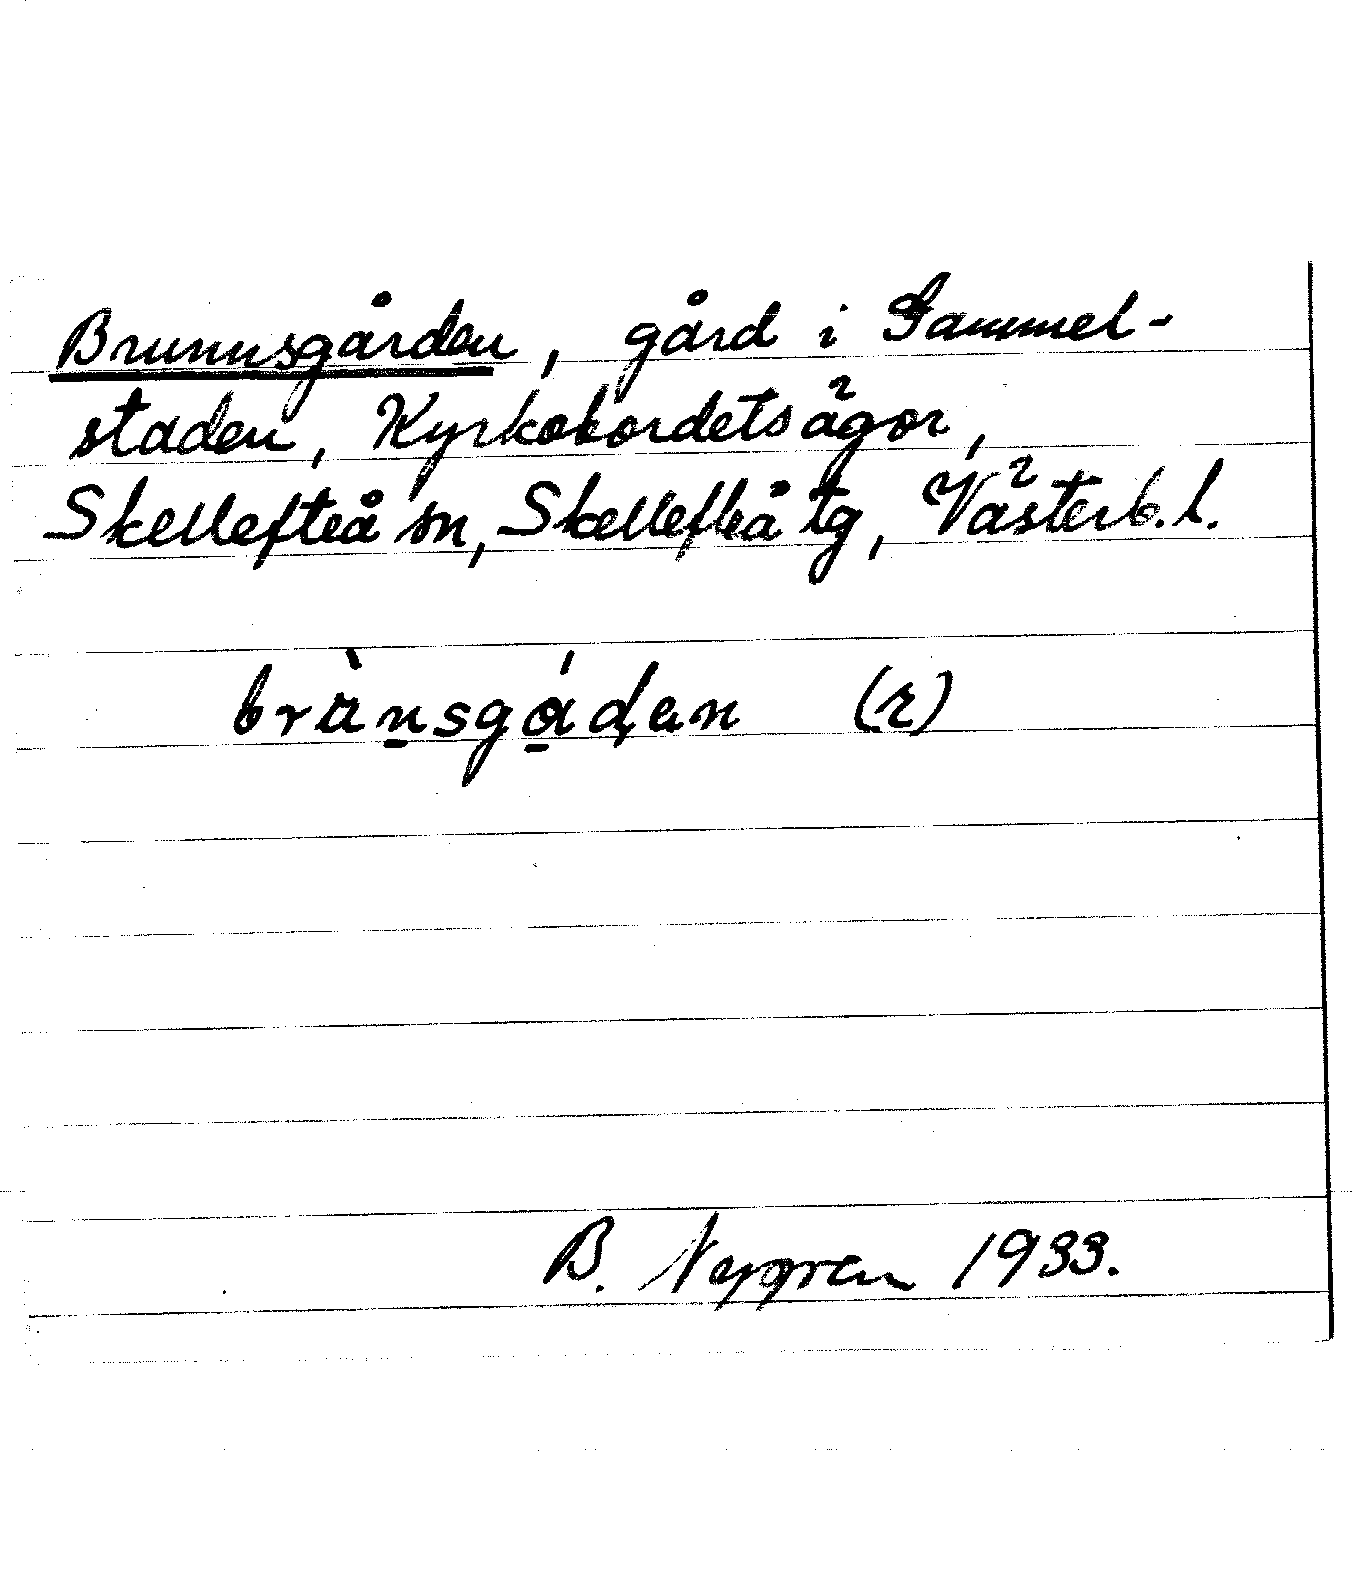 Brunnsgården, gård i Gammel-
staden, Kyrkobordets ägor,
Skellefteå sn, Skellefteå tg, Västerb. l.
(r)
B. Nygren 1933.